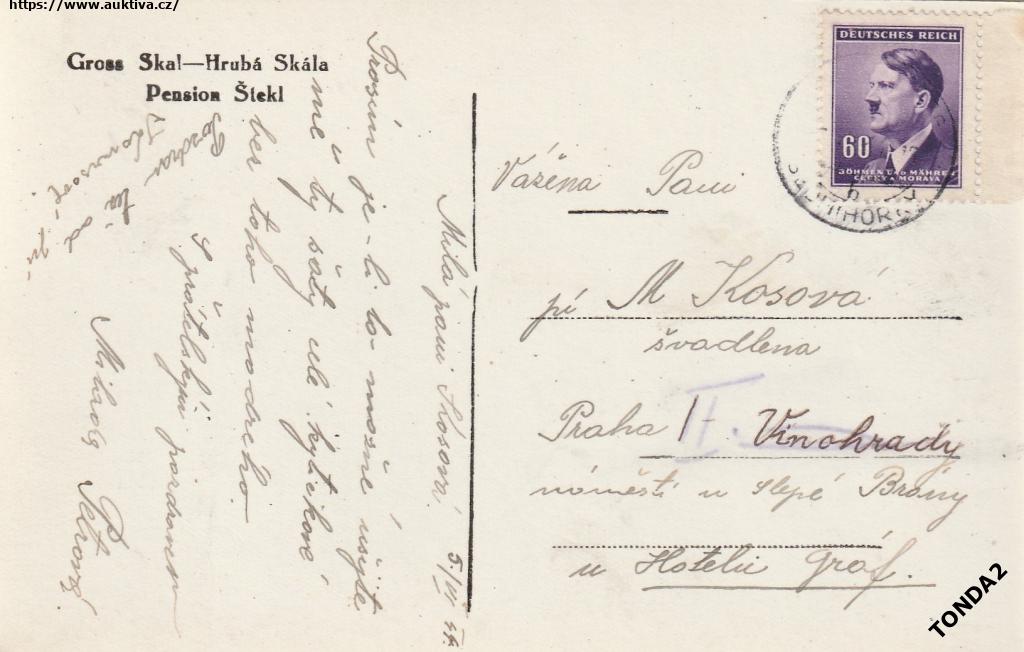 https://www.auktiva.cz/
Gross Skal—Hrubá Skála
Pension Štekl
Milá paní Kosová 5./IV. 44.
Prosím je-li to možné ušijte
mě ty šaty
bez toho modrého.
S přátelským pozdravem
Petrová.
Pozdrav
DEUTSCHES REICH
60
BÖHMEN UND MÄHREN
ČECHY A MORAVA
Vážená Paní
pí M Kosová
švadlena
Praha II. Vinohrady
náměstí u slepé Brány
u Hotelu Gráf.
TONDA2